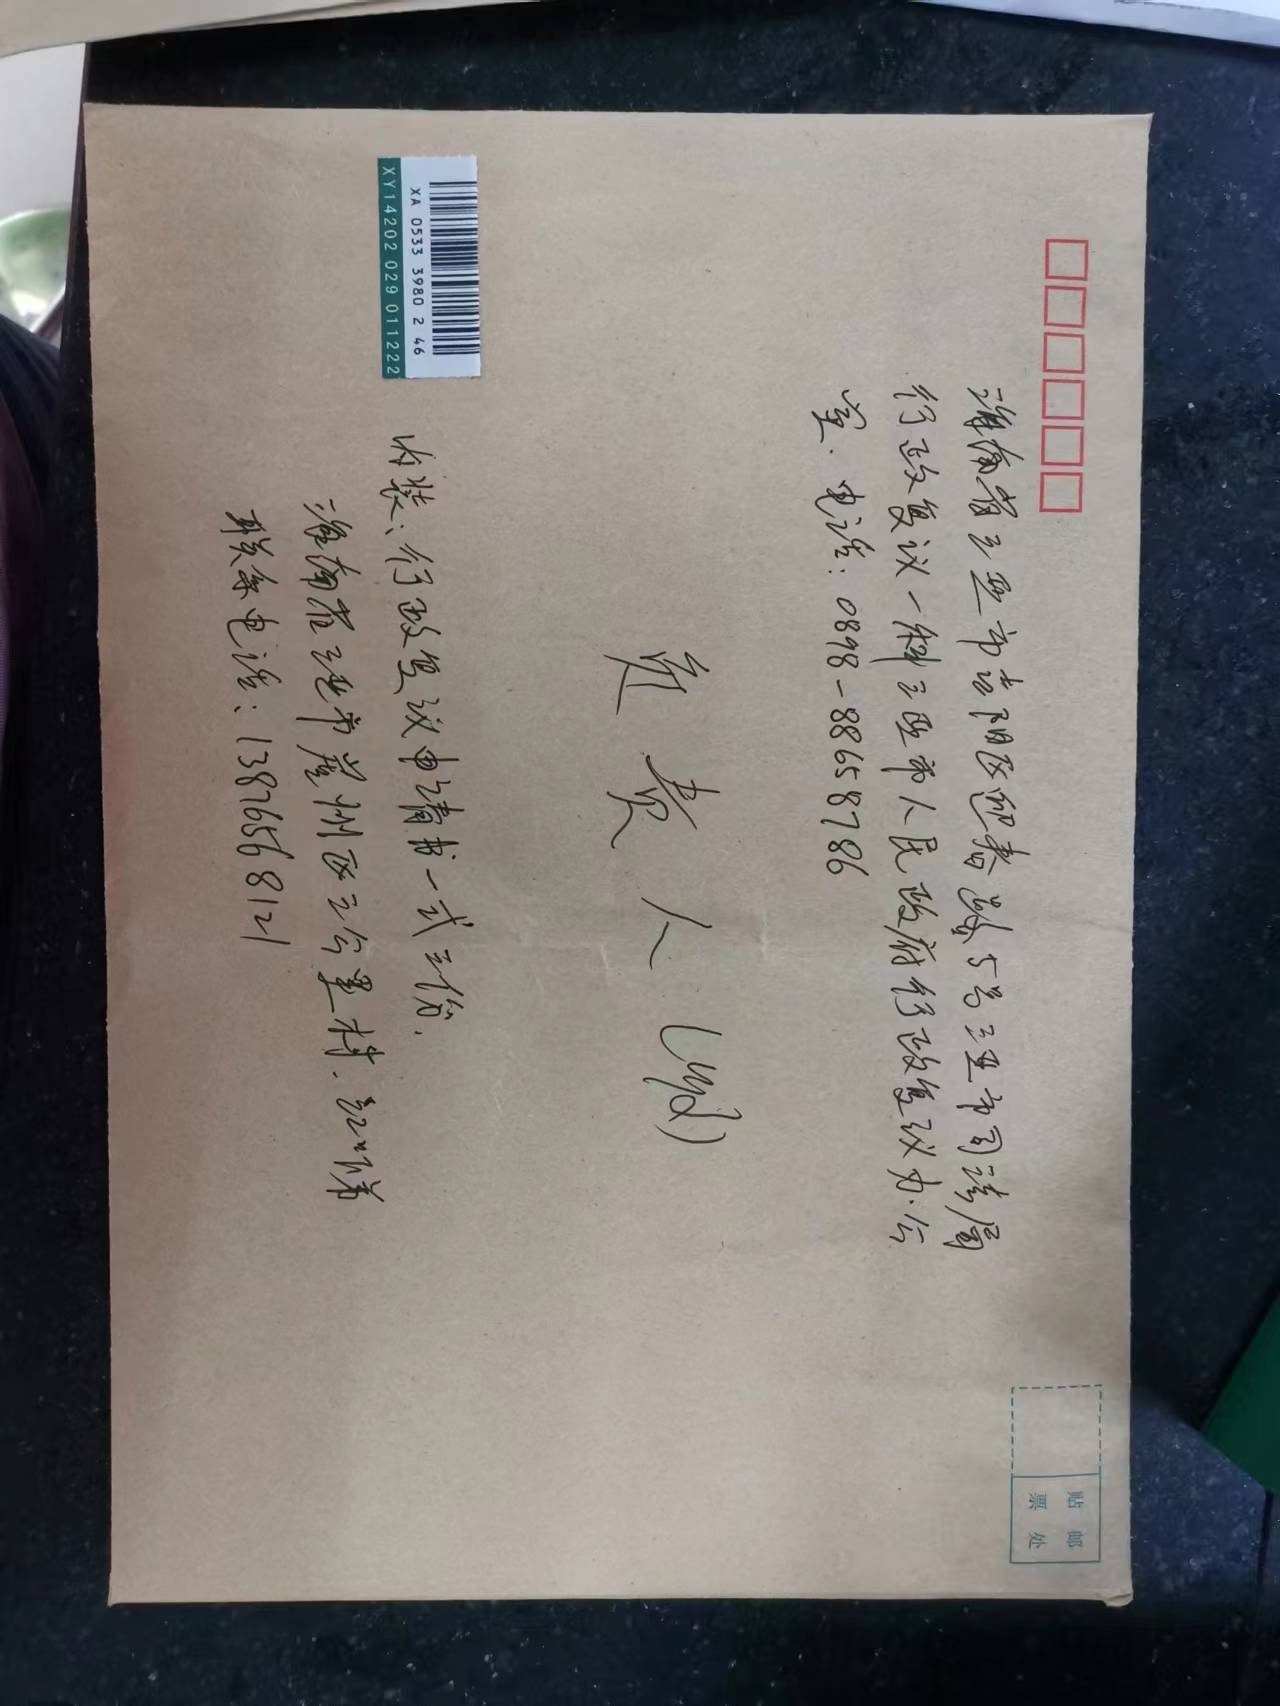 海南省三亚市吉阳区迎春路5号三亚市司法局
行政复议一科三亚市人民政府行政复议办公
室. 电话: 0898-88658786
负责人(收)
XA 0533 3980 2 46
XY14202 029 011222
内装: 行政复议申请书一式三份.
海南省三亚市崖州区三公里村.
联系电话: 13876568121
贴邮
票处